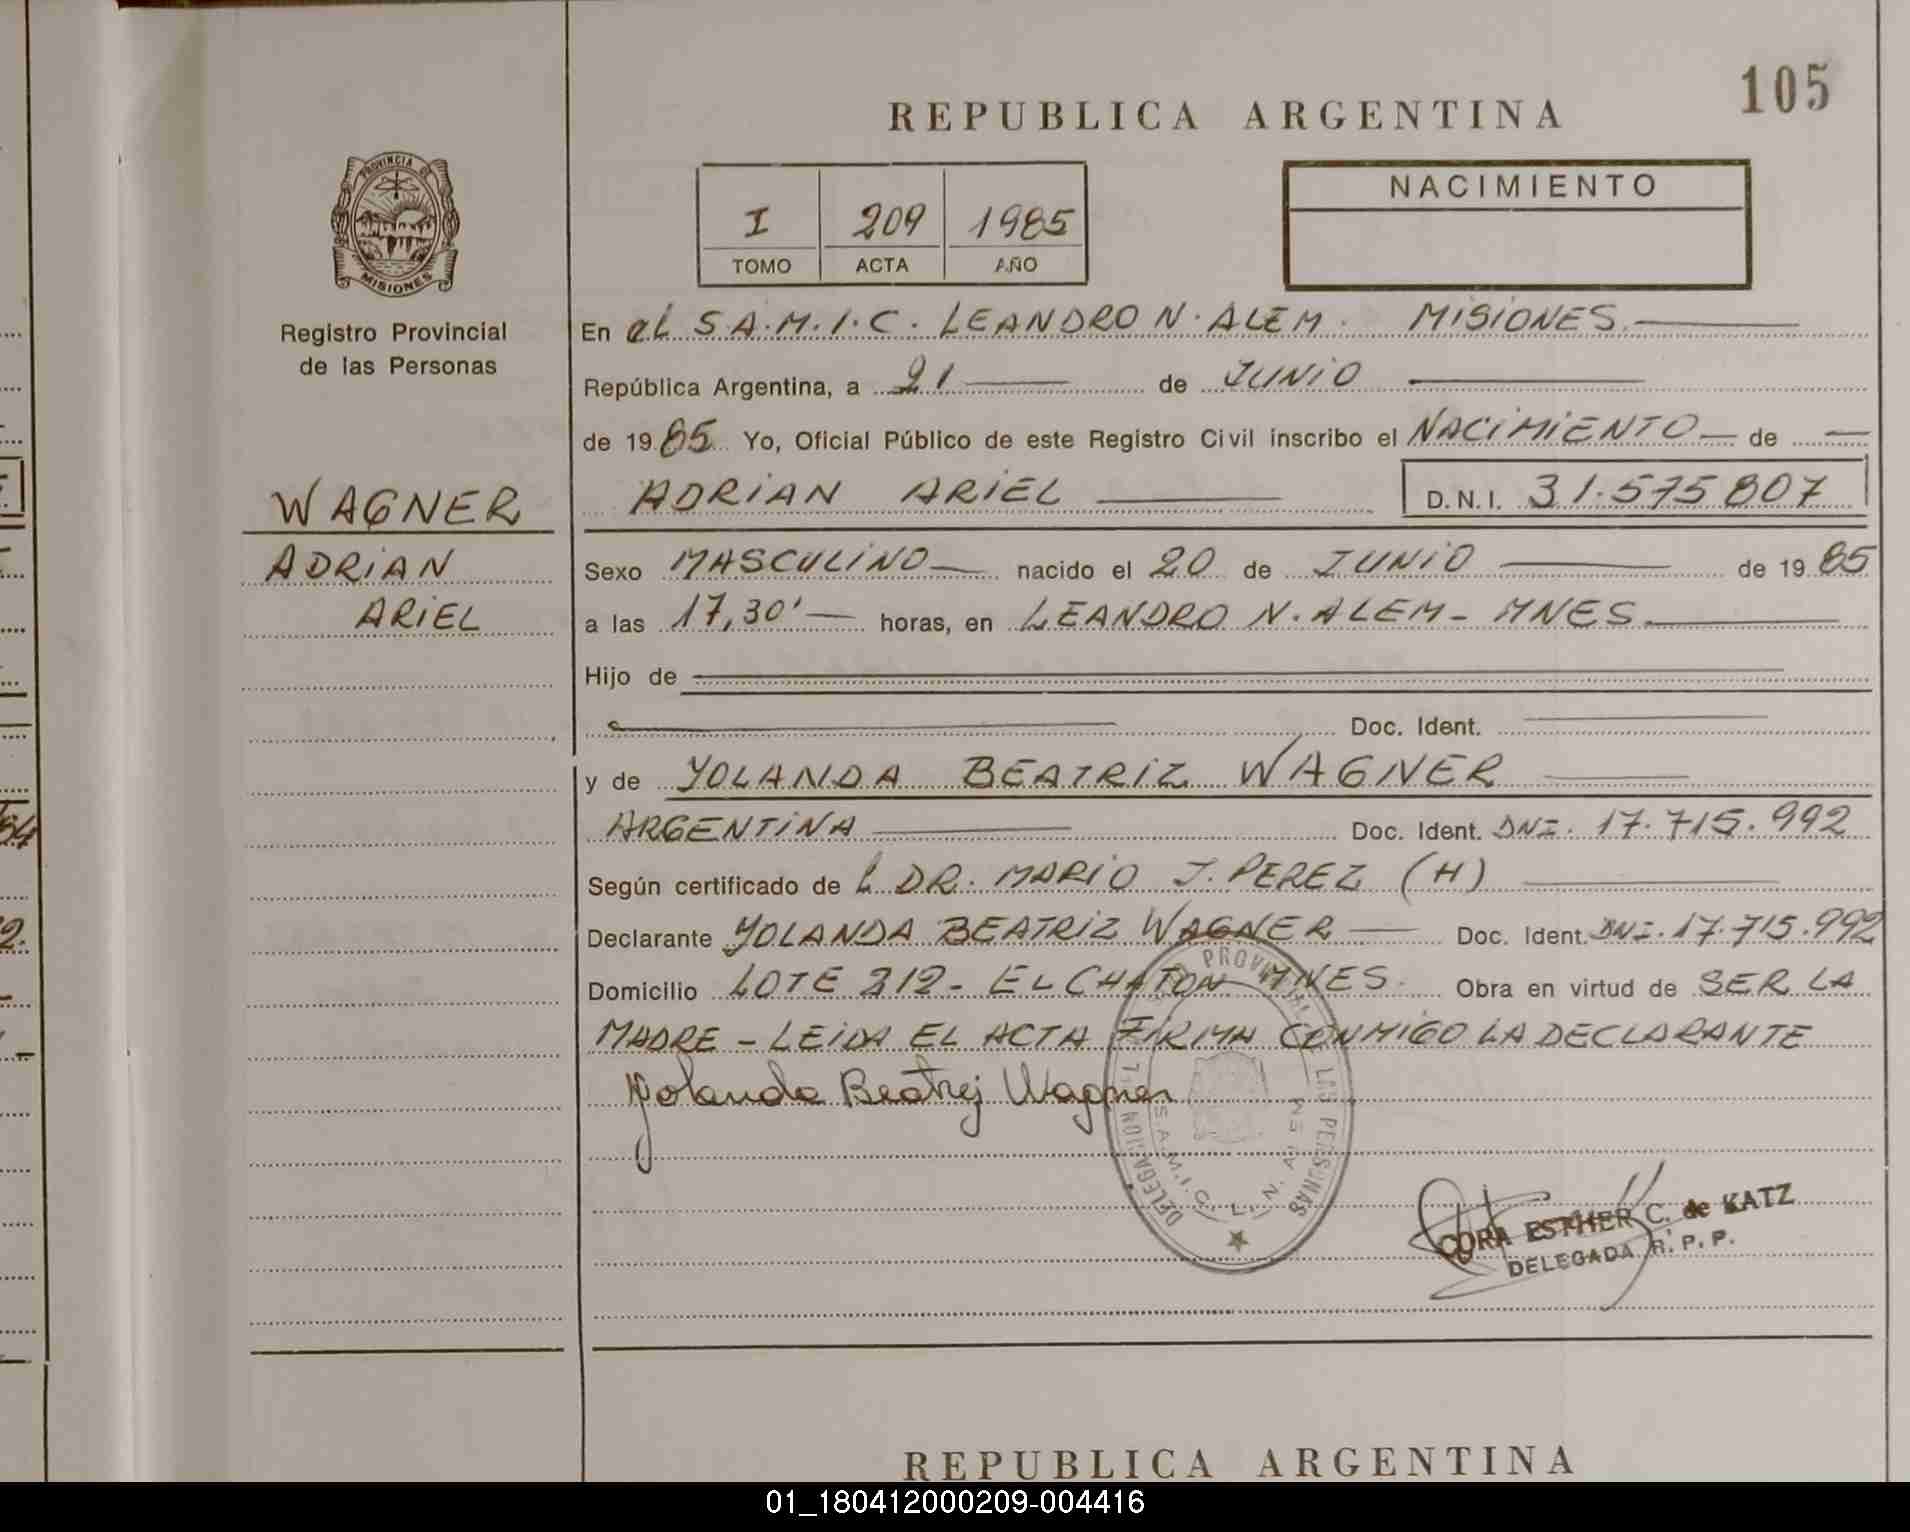 105
REPUBLICA ARGENTINA
PROVINCIA DE
MISIONES
Registro Provincial
de las Personas
I 209 1985
TOMO ACTA AÑO
NACIMIENTO
En el S.A.M.I.C. LEANDRO N. ALEM. MISIONES.
República Argentina, a 21 de JUNIO
de 1985 Yo, Oficial Público de este Registro Civil inscribo el NACIMIENTO de
ADRIAN ARIEL D.N.I. 31.575807
WAGNER
ADRIAN
ARIEL
Sexo MASCULINO nacido el 20 de JUNIO de 1985
a las 17,30' horas, en LEANDRO N. ALEM - MNES.
Hijo de
Doc. Ident.
y de YOLANDA BEATRIZ WAGNER
ARGENTINA Doc. Ident. DNI. 17.715.992
Según certificado de L DR. MARIO J. PEREZ (H)
Declarante YOLANDA BEATRIZ WAGNER Doc. Ident. DNI. 17.715.992
Domicilio LOTE 212 - EL CHATON MNES. Obra en virtud de SER LA
MADRE - LEIDA EL ACTA FIRMA CONMIGO LA DECLARANTE
Yolanda Beatriz Wagner
S.A.M.I.C. L. N. ALEM
CORA ESTHER C. de KATZ
DELEGADA R. P. P.
REPUBLICA ARGENTINA
01_180412000209-004416